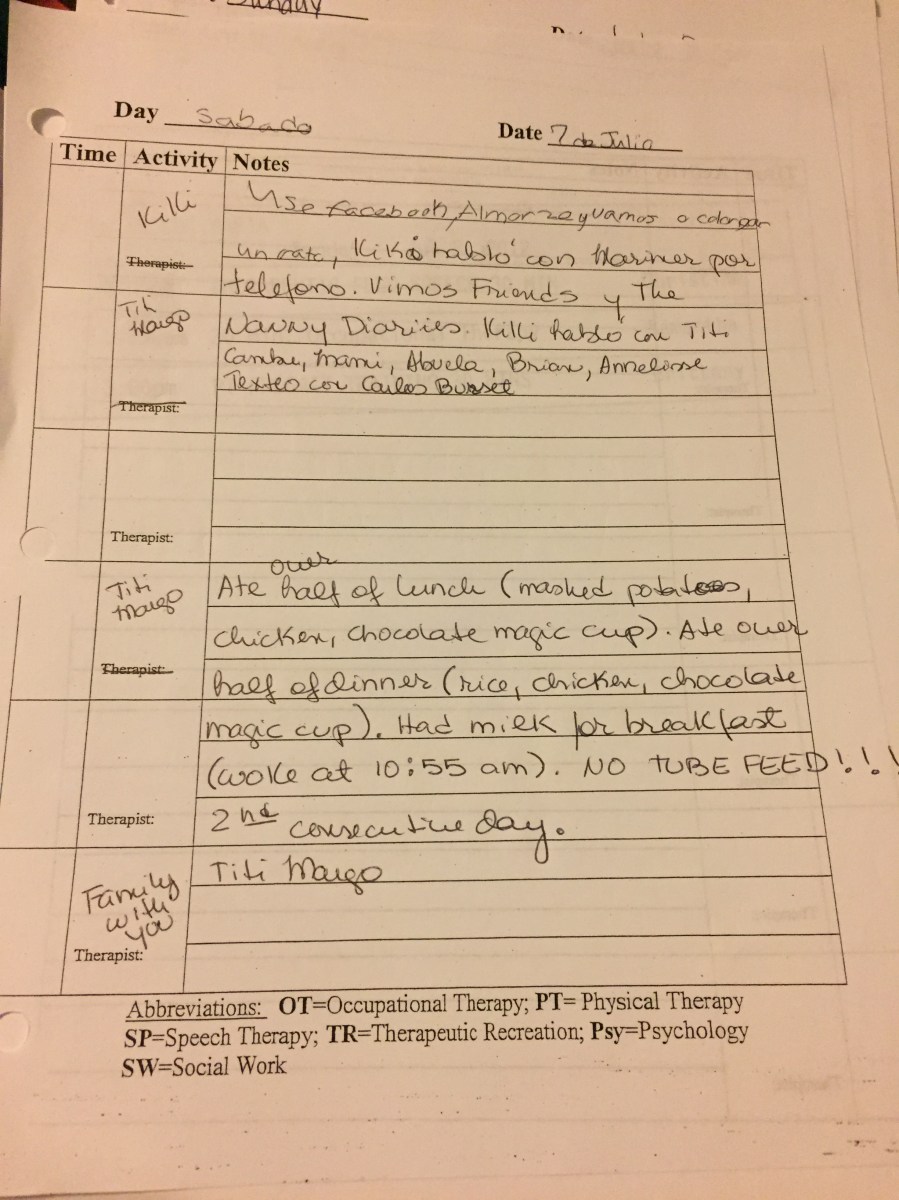 Sunday
Day Sabado
Date 7 de Julio
Time Activity Notes
Killi
Use facebook, Almorze y vamos a
un rato, Kiko habló con Mariner por
Therapist:
telefono. Vimos Friends y The
Titi
Margo
Nanny Diariies. Killi habló con Titi
Cambu, Mami, Abuela, Brian, Anneliesse
Texteo con Carlos Busset
Therapist:
Therapist:
over
Titi
Margo
Ate half of lunch (mashed potatoes,
chicken, chocolate magic cup). Ate over
Therapist:
half of dinner (rice, chicken, chocolate
magic cup). Had milk for breakfast
(woke at 10:55 am). NO TUBE FEED!!!
Therapist:
2nd consecutive day.
Titi Margo
Family
with
you
Therapist:
Abbreviations: OT=Occupational Therapy; PT= Physical Therapy
SP=Speech Therapy; TR=Therapeutic Recreation; Psy=Psychology
SW=Social Work